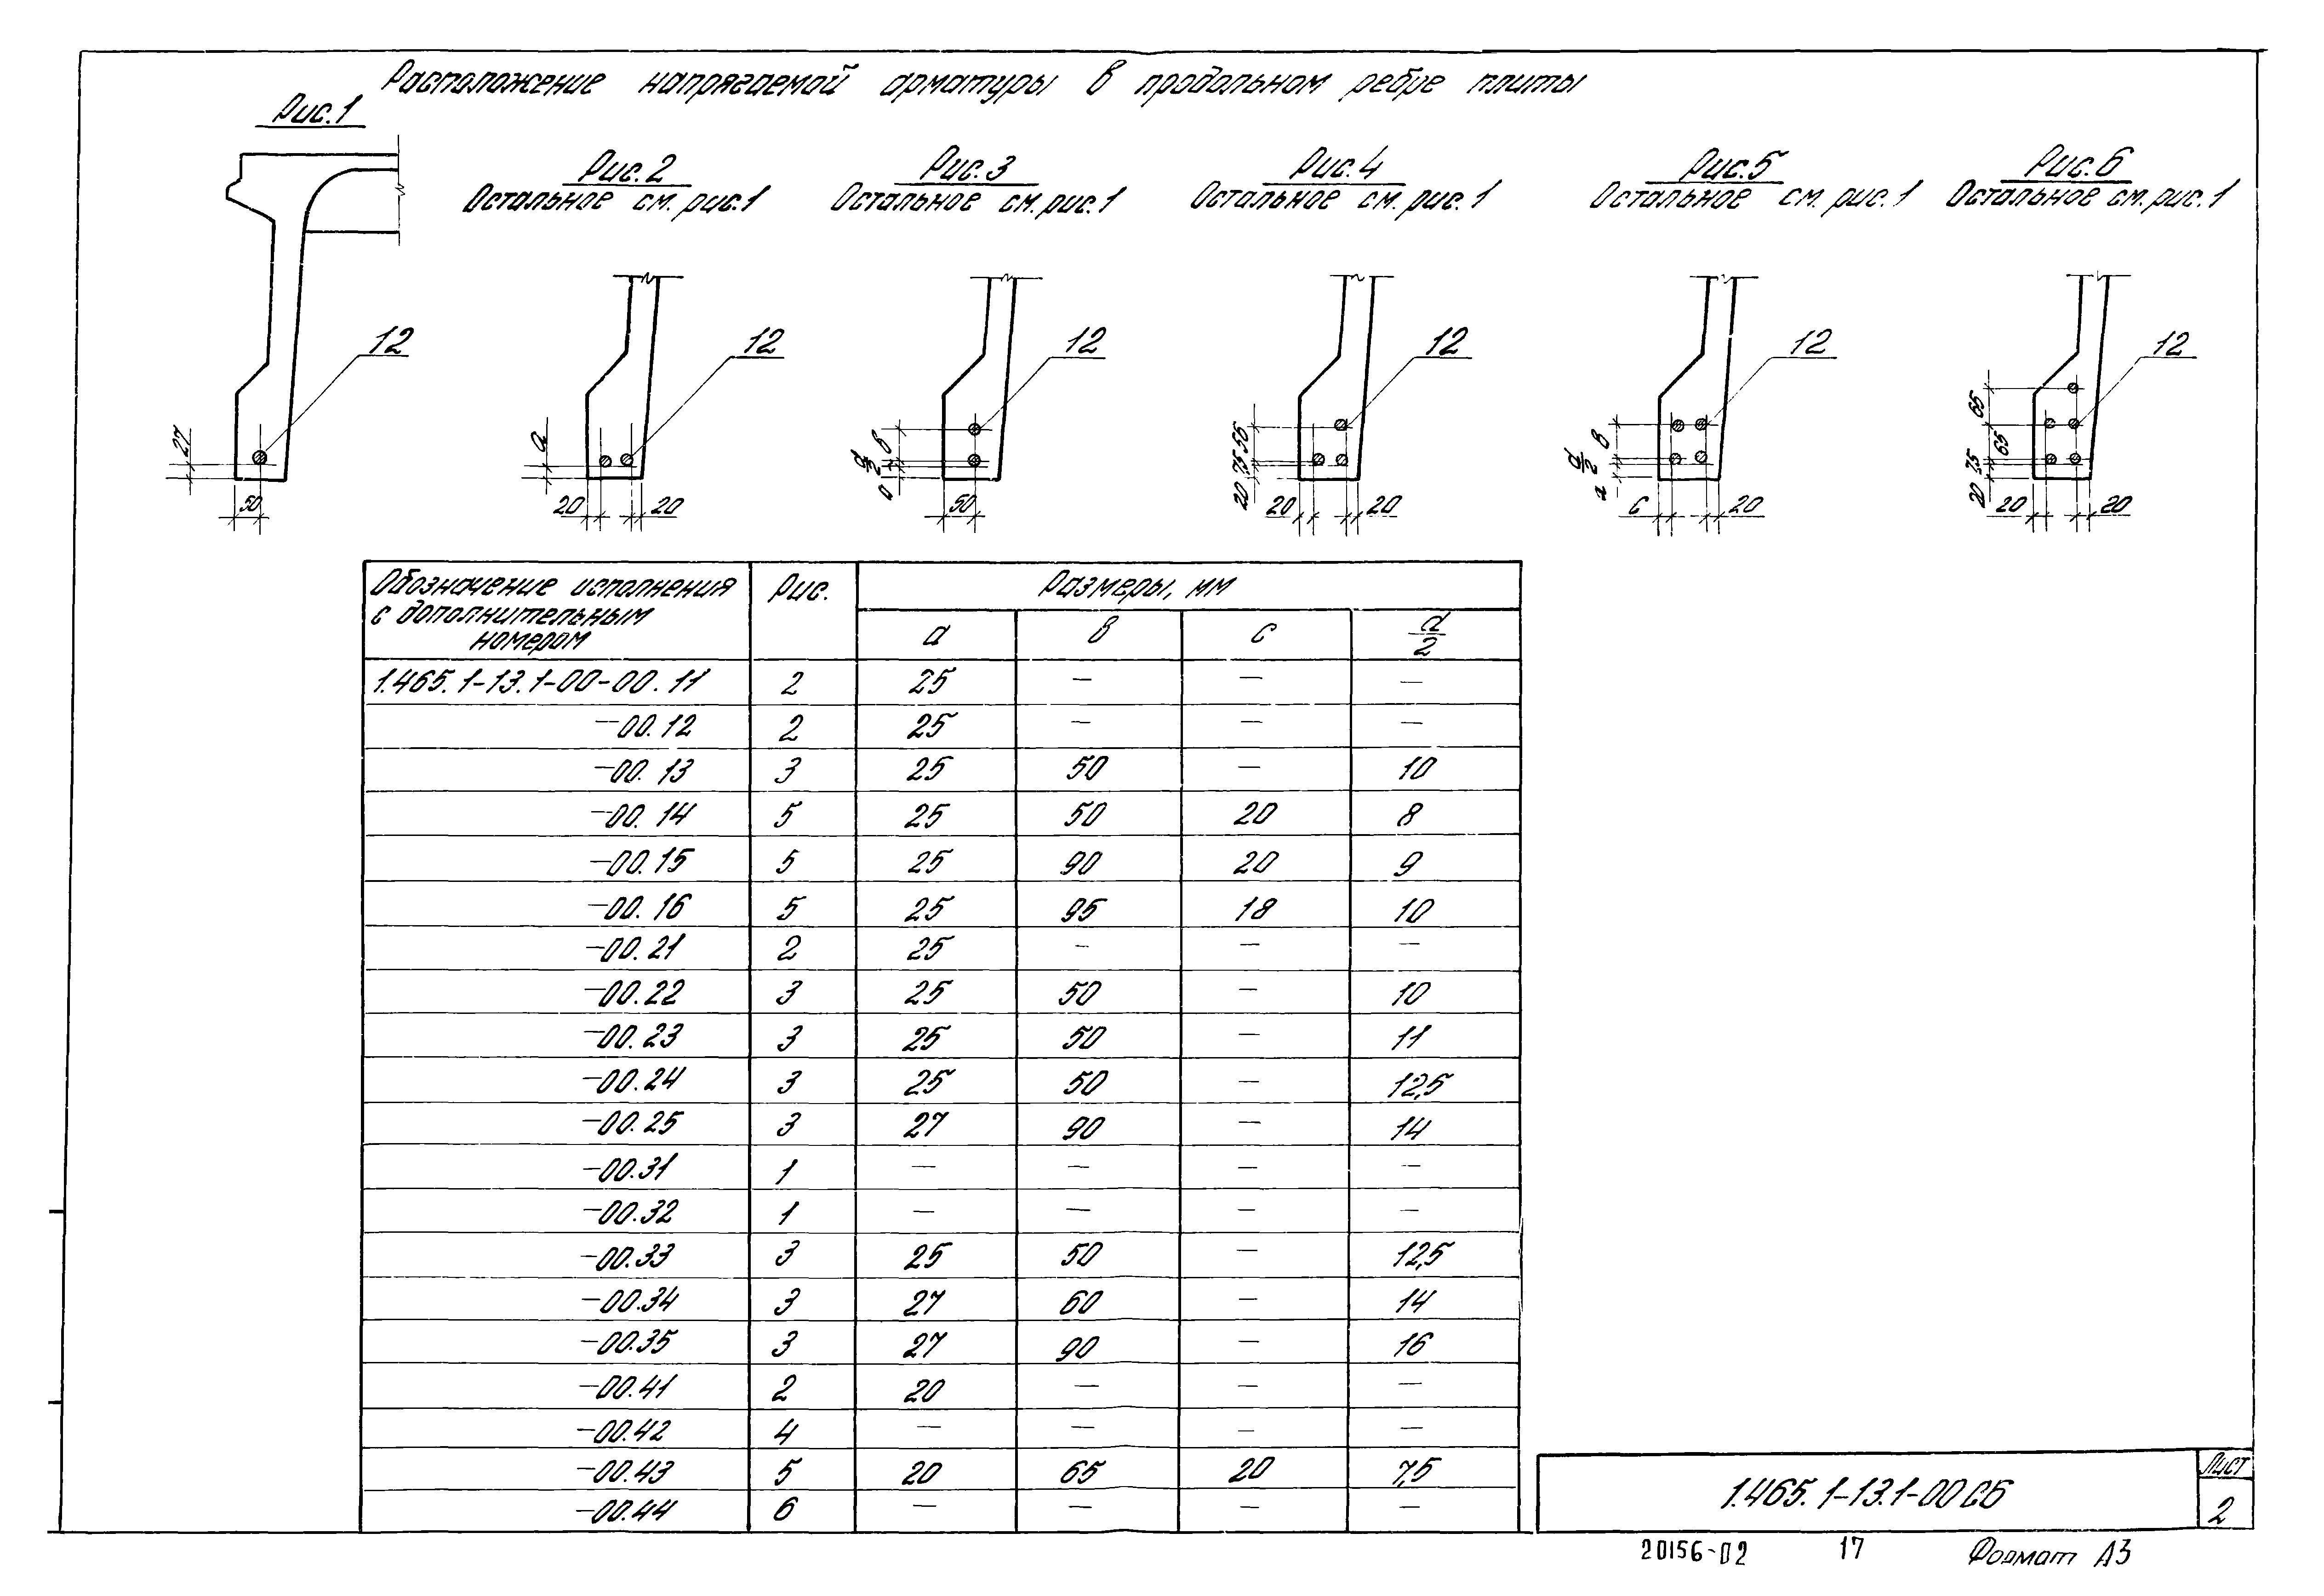 Расположение напрягаемой арматуры в продольном ребре плиты
Рис.1
12
27
50
Рис.2
Остальное см. рис.1
12
а
20 20
Рис.3
Остальное см. рис.1
12
в
d/2
а
50
Рис.4
Остальное см. рис.1
12
55
7,5
20
20 20
Рис.5
Остальное см. рис.1
12
в
d/2
а
с 20
Рис.6
Остальное см. рис.1
12
65
65
7,5
20
20 20
Обозначение исполнения с дополнительным номером Рис. Размеры, мм
а в с d/2
1.465.1-13.1-00-00.11 2 25 — — —
—00.12 2 25 — — —
—00.13 3 25 50 — 10
—00.14 5 25 50 20 8
—00.15 5 25 90 20 9
—00.16 5 25 95 18 10
—00.21 2 25 — — —
—00.22 3 25 50 — 10
—00.23 3 25 50 — 11
—00.24 3 25 50 — 12,5
—00.25 3 27 90 — 14
—00.31 1 — — — —
—00.32 1 — — — —
—00.33 3 25 50 — 12,5
—00.34 3 27 60 — 14
—00.35 3 27 90 — 16
—00.41 2 20 — — —
—00.42 4 — — — —
—00.43 5 20 65 20 7,5
—00.44 6 — — — —
1.465.1-13.1-00СБ
Лист
2
20156-02 17 Формат А3